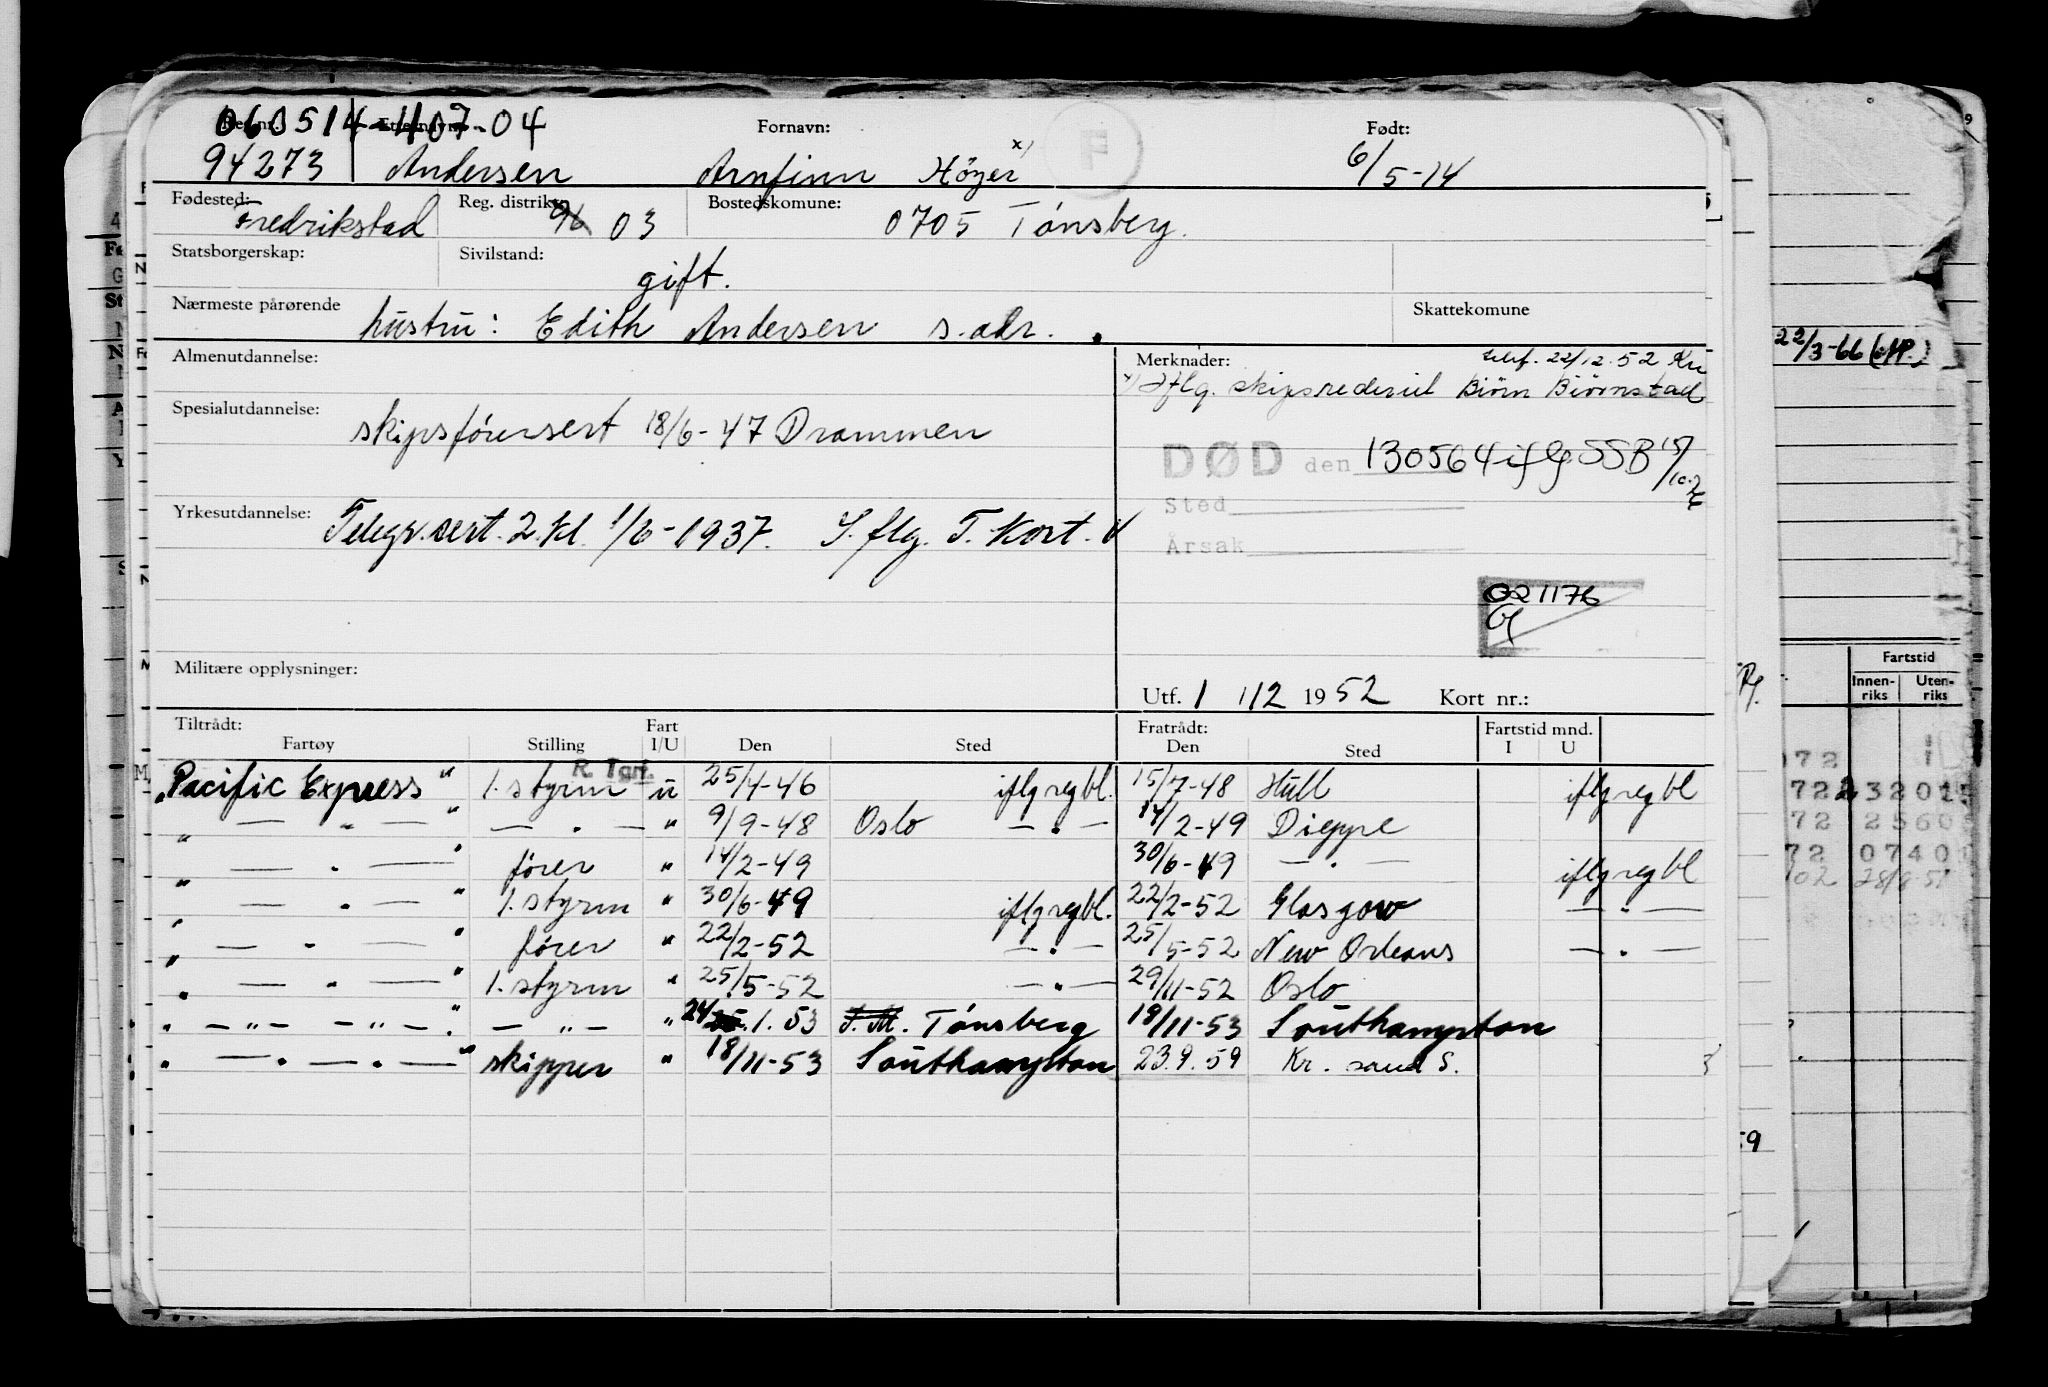 060514-407-04
Reg.nr. Etternavn: Fornavn: Født:
94273 Andersen Arnfinn Höyer x) F 6/5-14
Fødested: Fredrikstad Reg. distrikt: 96 03 Bostedskomune: 0705 Tønsberg.
Statsborgerskap: Sivilstand: gift.
Nærmeste pårørende hustru: Edith Andersen s. adr. . Skattekomune
Almenutdannelse: Merknader: telef. 22/12.52 Kri
x) Iflg. skipsrederiet Biörn Biörnstad
Spesialutdannelse: skipsförersert 18/6-47 Drammen
DØD den 130564 iflg SSB 15/10.76
Sted
Yrkesutdannelse: Telegr.sert. 2.kl. 1/6-1937. I.flg. T. Kort.
Årsak
021176
Militære opplysninger:
Utf. 1 / 12 1952 Kort nr.:
Tiltrådt: Fart Fratrådt: Fartstid mnd.
Fartøy Stilling I/U Den Sted Den Sted I U
"Pacific Express" 1. styrm R. Tgrf. u 25/4-46 iflg regbl. 15/7-48 Hull iflg regbl
" — " — " — . — " 9/9-48 Oslo — . — 14/2-49 Dieppe
" — . — " förer " 14/2-49 30/6-49 — . — iflg regbl
" — . — " 1. styrm " 30/6-49 iflg regbl. 22/2-52 Glasgow — . —
" — . — " förer " 22/2-52 — . — 25/5-52 New Orleans — . —
" — . — " 1. styrm " 25/5-52 — . — 29/11-52 Oslo
" — " — — " — " — " — " 24.1.53 T.M. Tönsberg 18/11-53 Southampton
" — . — . — " skipper " 18/11-53 Southampton 23.9.59 Kr. sand S.
22/3-66
Fartstid
Innenriks Utenriks
072 1
722 23201
72 2560
72 0740
702 28/8-5
59